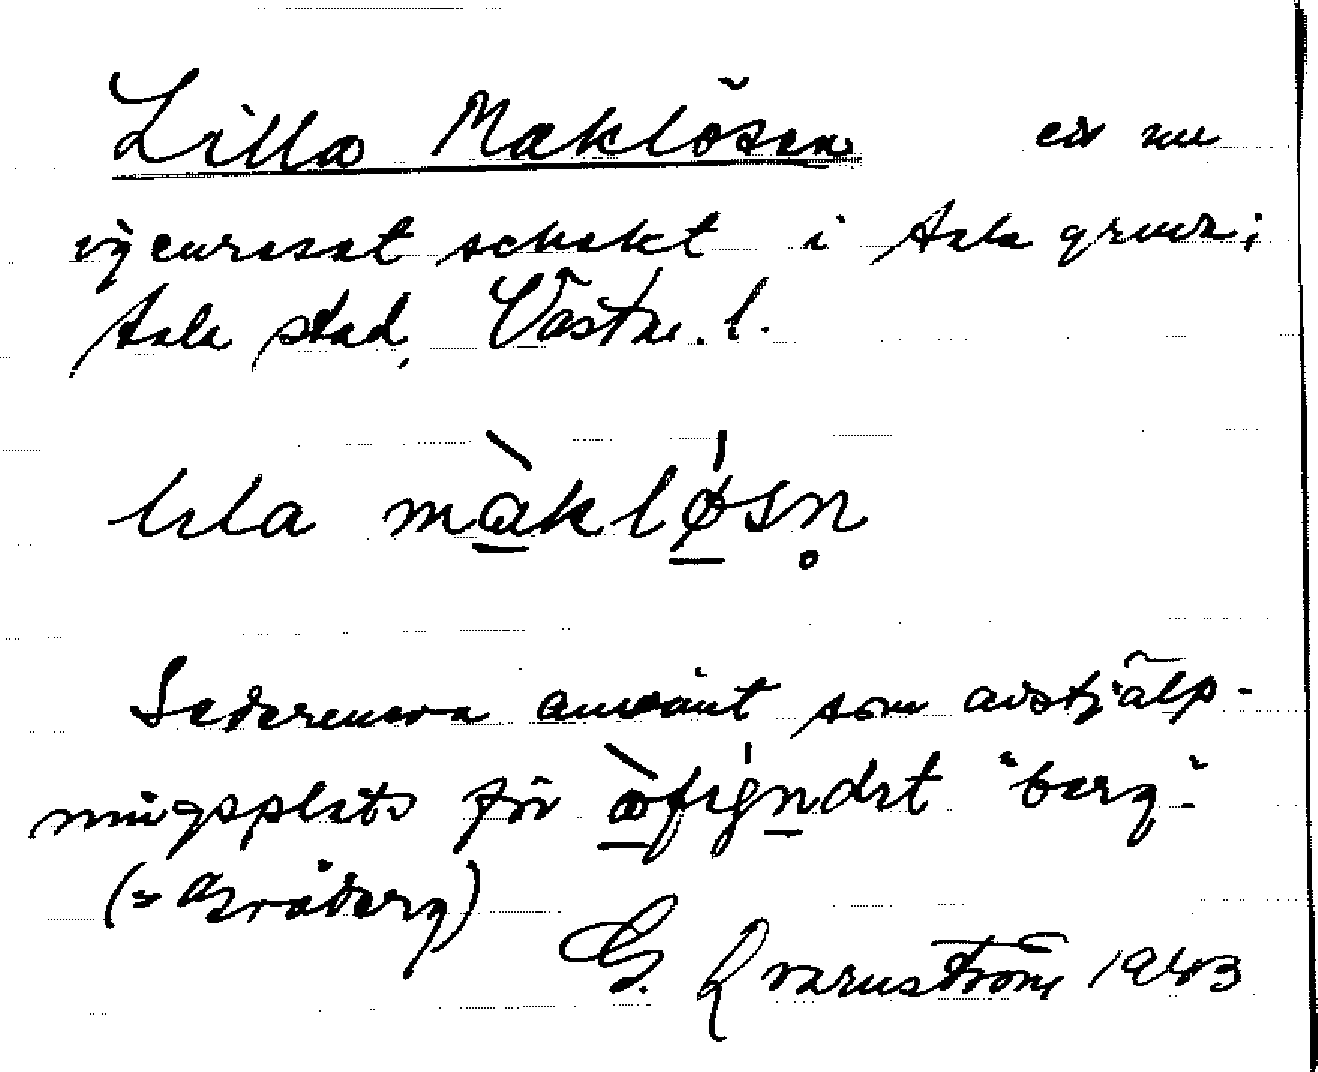 Lilla Maklösen ett nu
igenrasat schakt i Sala gruva;
Sala stad, Västm. l.
lıla màkløsn̥
Sedermera använt som avstjälp-
ningsplats för àfıgndıt "berg".
(= Gråberg)
G. Qvarnström 1943